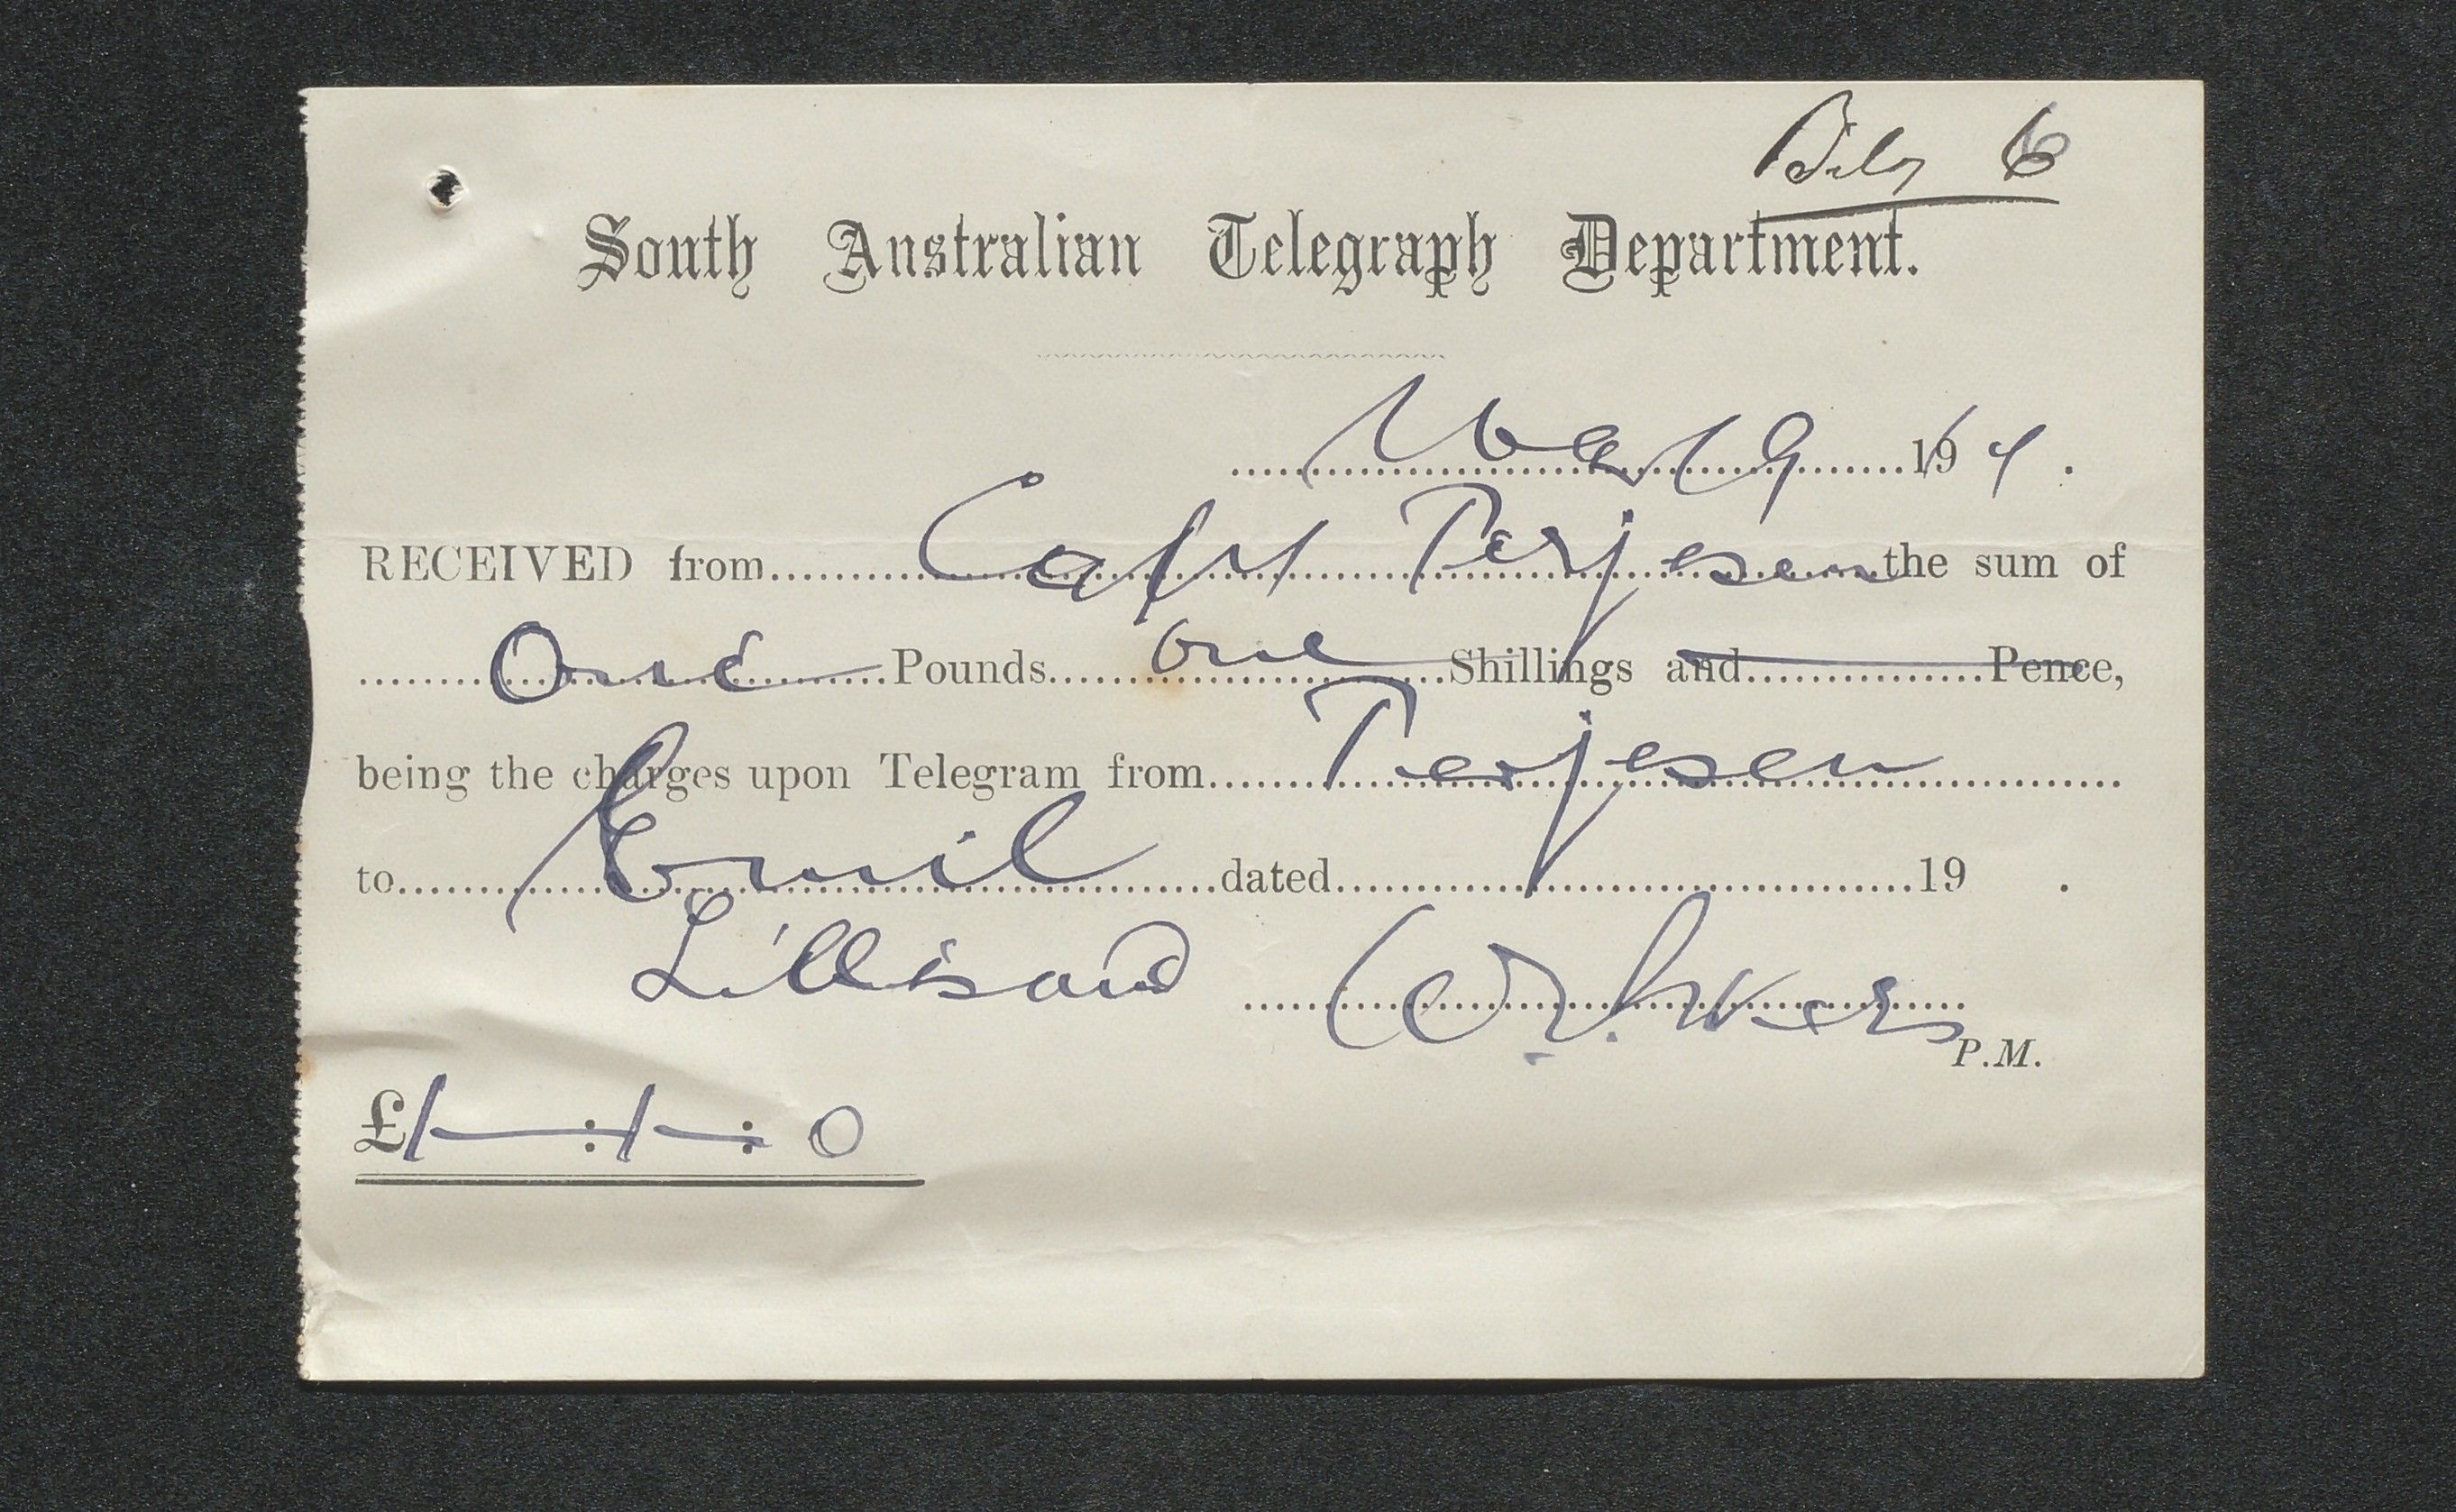 Bilag 6
South Australian Telegraph Department.
19 4.
RECEIVED from Capt Terjesen the sum of
One Pounds one Shillings and Pence,
being the charges upon Telegram from Terjesen
to Emil dated 19 .
Lillisand
P.M.
£1 : 1 : 0